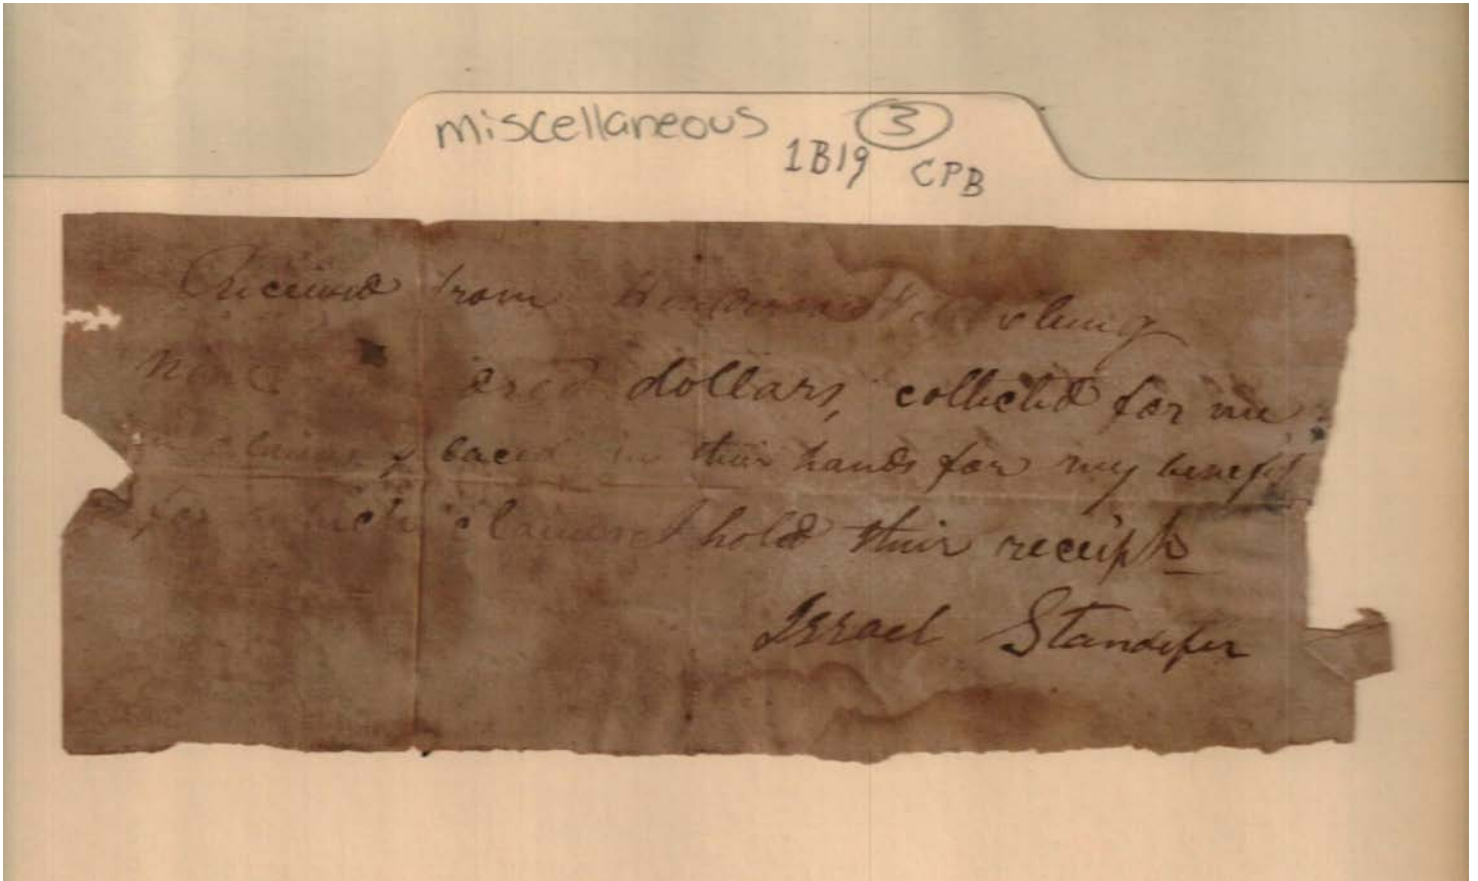 miscellaneous 3
1B19 CPB
Received from
dollars, collected for me
placed in their hands for my benefit
for which claims I hold their receipts
Israel Standefer